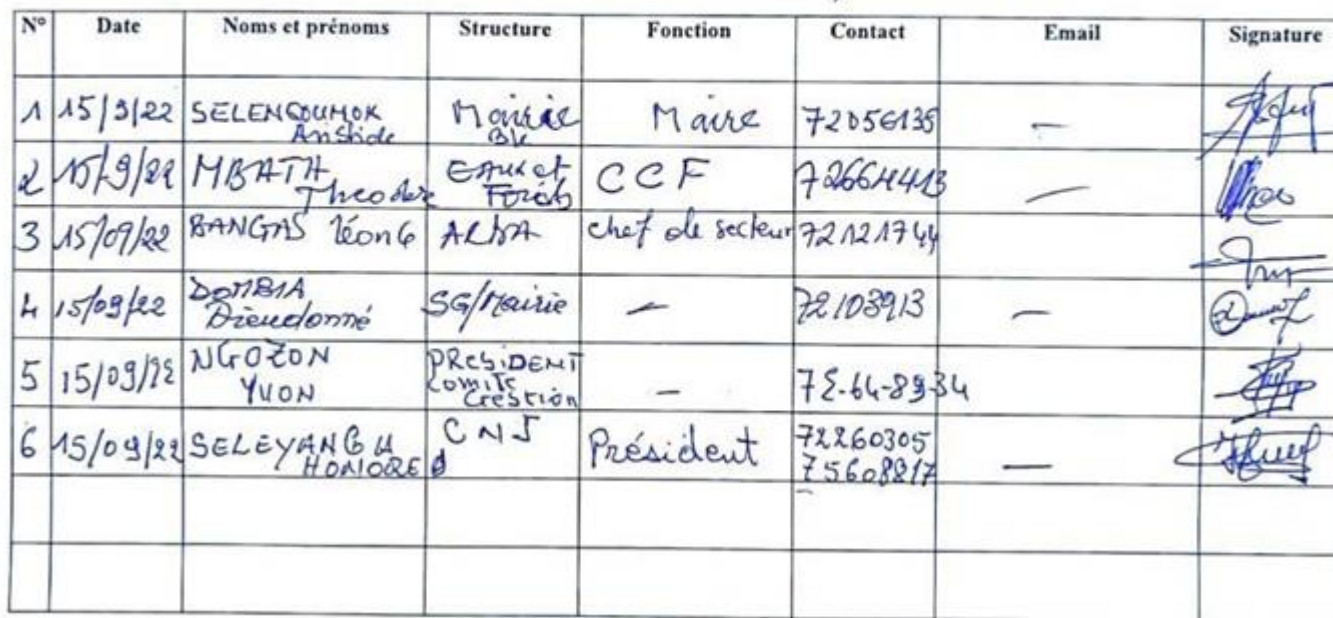 N° Date Noms et prénoms Structure Fonction Contact Email Signature
1 15/9/22 SELENGOUMOK Aristide Mairie Maire 72056135 —
2 15/9/22 MBATA Theodore Eaux et Forêts CCF 72664413 —
3 15/09/22 BANGAS Léon chef de secteur 72121744
4 15/09/22 DOMBIA Dieudonné SG/Mairie — 72103913 —
5 15/09/22 NGOZON YVON PRESIDENT Comité Gestion — 72-64-89-34
6 15/09/22 SELEYANGU HONORE CNJ Président 72260305 —
75608817